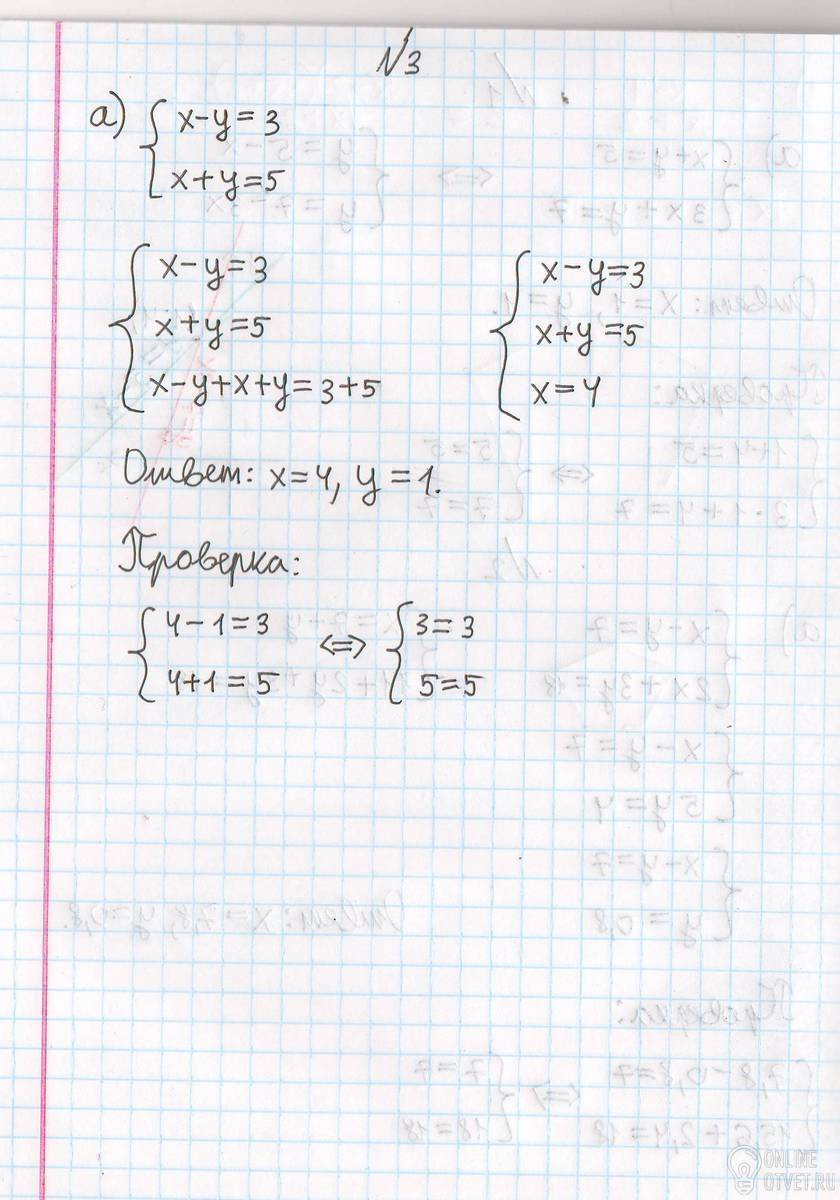 №3
а) { x-y=3
x+y=5
{ x-y=3
x+y=5
x-y+x+y=3+5
{ x-y=3
x+y=5
x=4
Ответ: x=4, y=1.
Проверка:
{ 4-1=3
4+1=5
<=> { 3=3
5=5
ONLINE
OTVET.RU